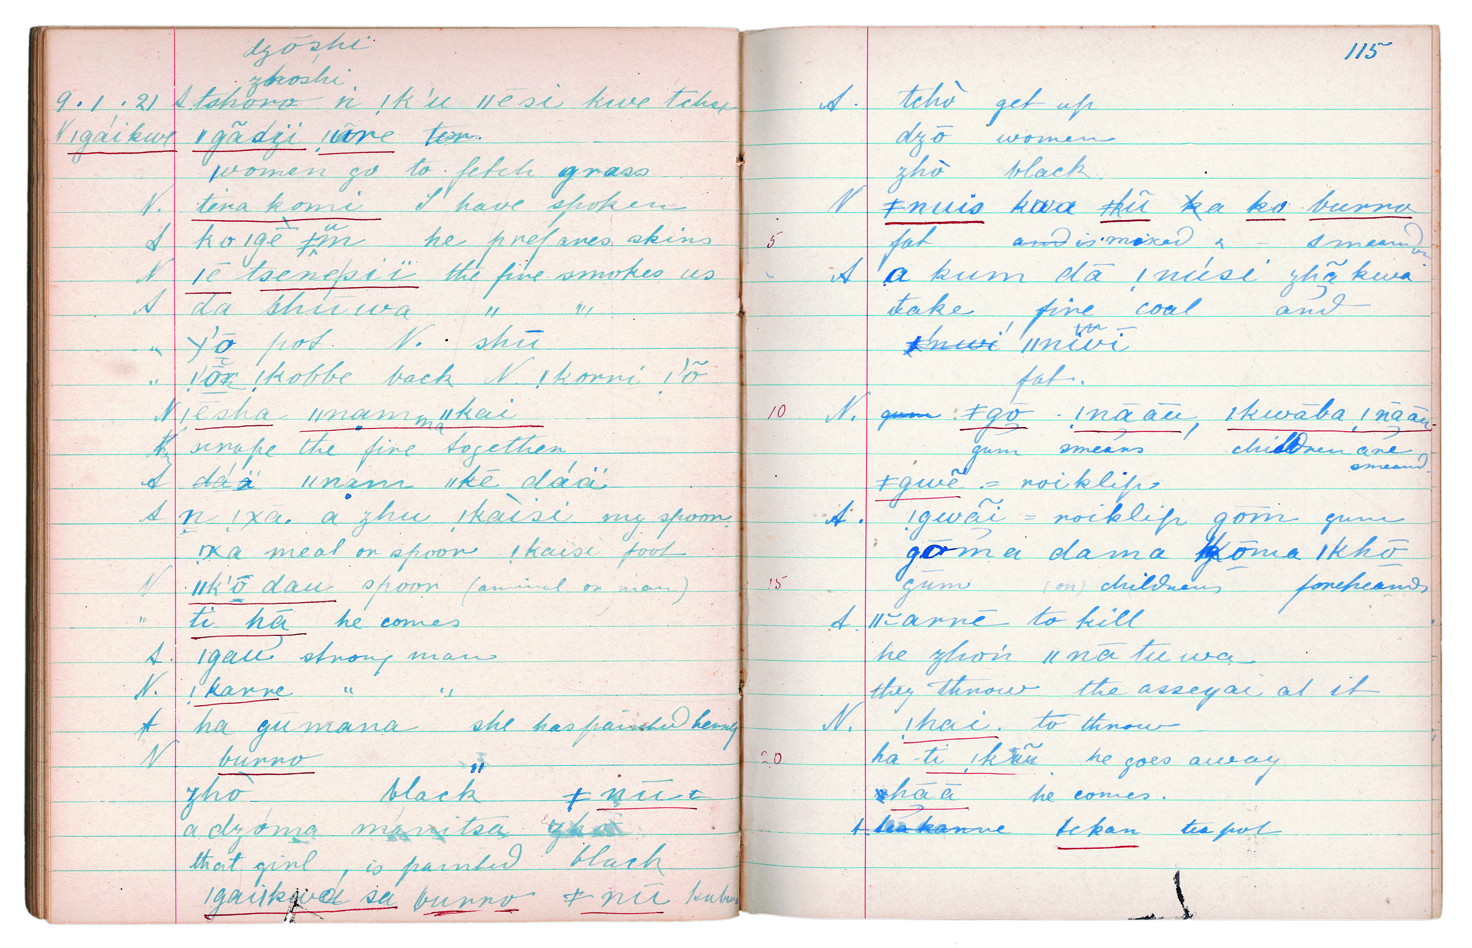 dzōshi
zhoshi
9.1.21 A tshoro ń ǃk'u ǁēsi kwe tcha
N ǀgáikwe ǁgãdzi ǀǀõre ter.
women go to fetch grass
N. tera komi I have spoken
A ko ǀgē ǂm̃ he prepares skins
N ǀē tsenepii the fire smokes us
A da shūwa " "
" y'ō pot N. shū
" ǀ'ōr ǃkobbe back N. ǃkorri ǀ'õ
N ǀēsha ǁnam ma ǁkai
scrape the fire together
A dáä ǁnam ǁkē dáä
A n ǀxa. a zhu ǃkàisi my spoon
ǀxa meal or spoon ǃkaisi foot
N ǁk'ō dau spoon (animal or man)
" ti hā he comes
A. ǀgaù strong man
N. ǃkarre " "
A ha gumana she has painted
N burro "
zhò black ǂnū
a dzoma manitsa zho
that girl, is painted black
ǀgaikwa sa burro ǂnū
115
A. tchò get up
dzō women
zhò black
N ǂnuis kwa ǂkũ ka ko burro
5 fat and is mixed & - smeared on
A a kum dā ǃnúsi zhã kwa
take fire coal and
ǂnwi ǁnĩvī
fat.
10 N. gum ǂgō. ǃnāāū, ǃkwāba ǃnāāū.
gum smears children are
smeared
ǂgwẽ = roiklip
A. ǃgwãi = roiklip gōm gum
gōma dama kōma ǀkhō
15 gum (on) childrens foreheads
A ǁarrē to kill
he zhoń ǁnā tuwa
they throw the assegai at it
N. ǃhai. to throw
20 ha ti ǃkãũ he goes away
hāā he comes.
teakanne tekan tea pot